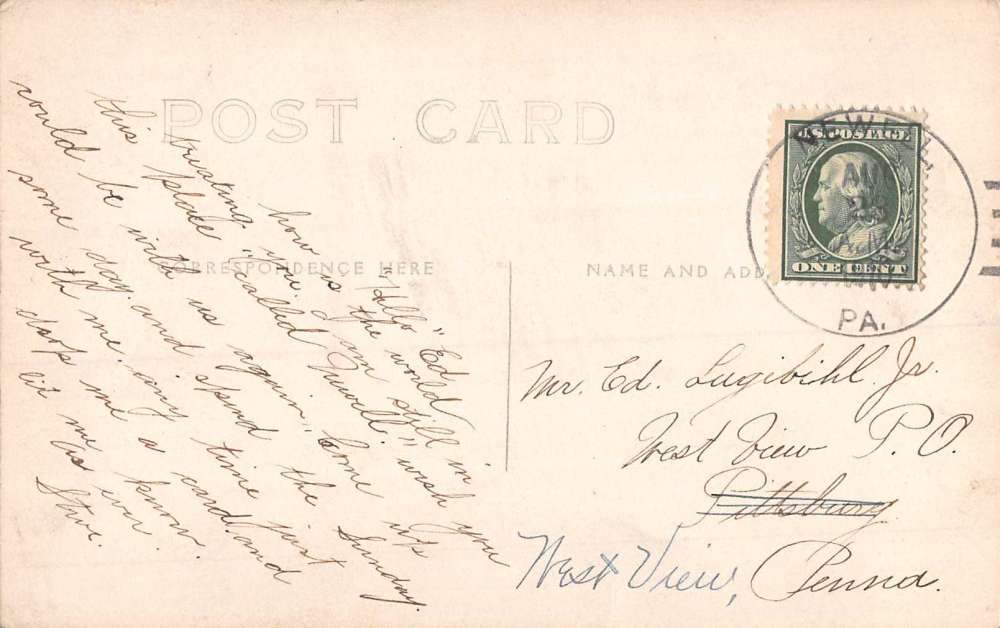 POST CARD
CORRESPONDENCE HERE
NAME AND ADD
"Hello" Ed
how is the world
treating you. I am still in
this place "called Newell." wish you
could be with us again" Come
some day. and spend the Sunday.
with me. any time just
drop me a card. and
let me know.
as ever.
Steve.
U.S. POSTAGE
ONE CENT
NEWELL
AUG
23
A.M.
PA.
Mr. Ed. Lugibihl Jr.
West View P.O.
Pittsburg
West View, Penna.